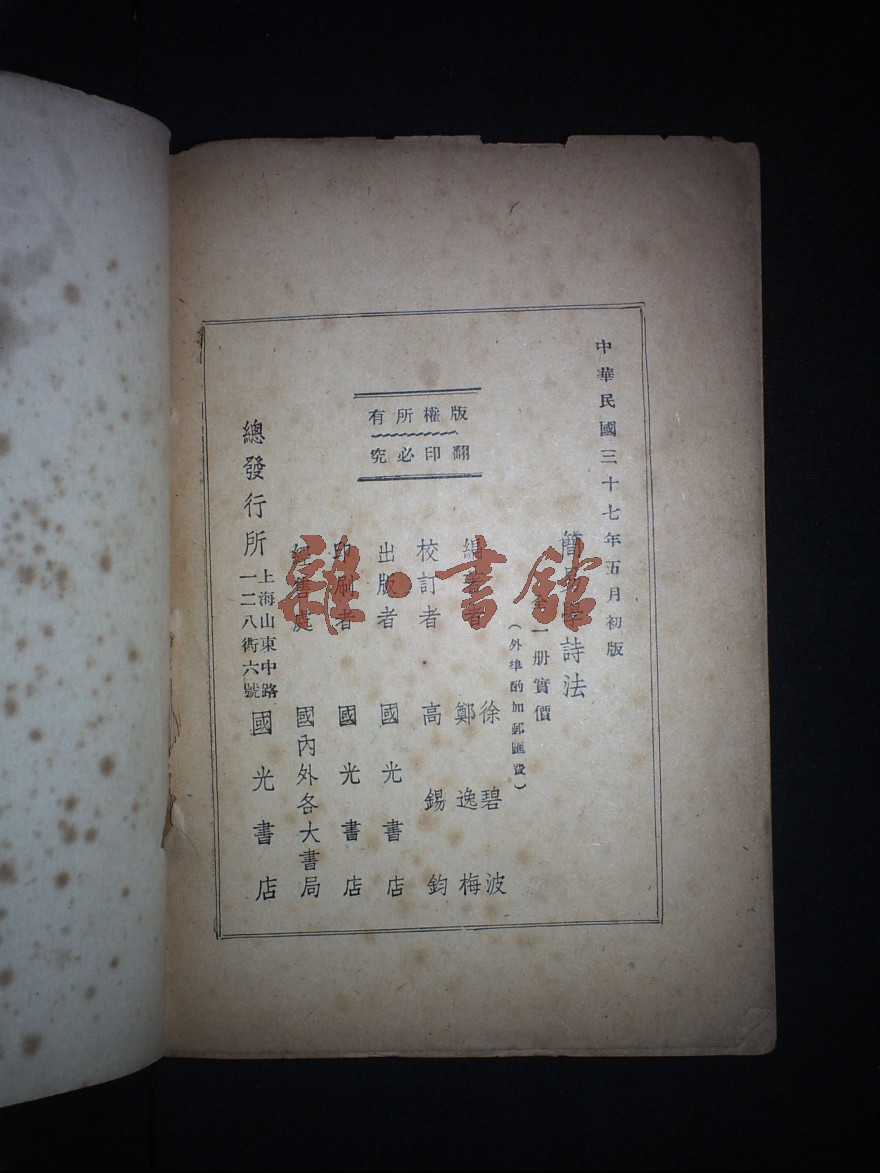 中華民國三十七年五月初版
簡易學詩法
全一册實價
（外埠酌加郵匯費）
編著者 徐碧波
鄭逸梅
校訂者 高錫鈞
出版者 國光書店
印刷者 國光書店
經售處 國內外各大書局
總發行所 上海山東中路
一二八衖六號 國光書店
版權所有
翻印必究
雜·書館